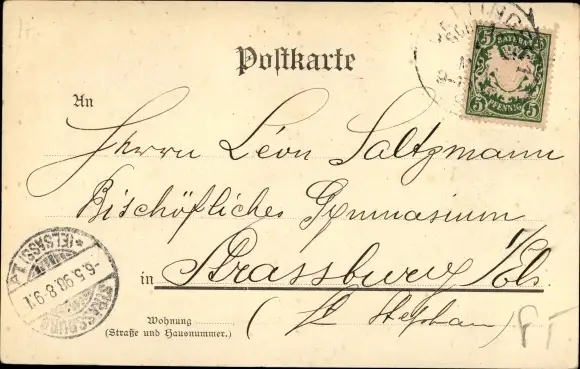 BAYERN
5 5
PFENNIG
5 5
Postkarte
An
Herrn Léon Saltzmann
Bischöfliches Gymnasium
in Strassburg i/Els.
(St Stephan)
STRASSBURG
(ELSASS) P.1
6.5.98.8-9.
Wohnung
(Straße und Hausnummer.)